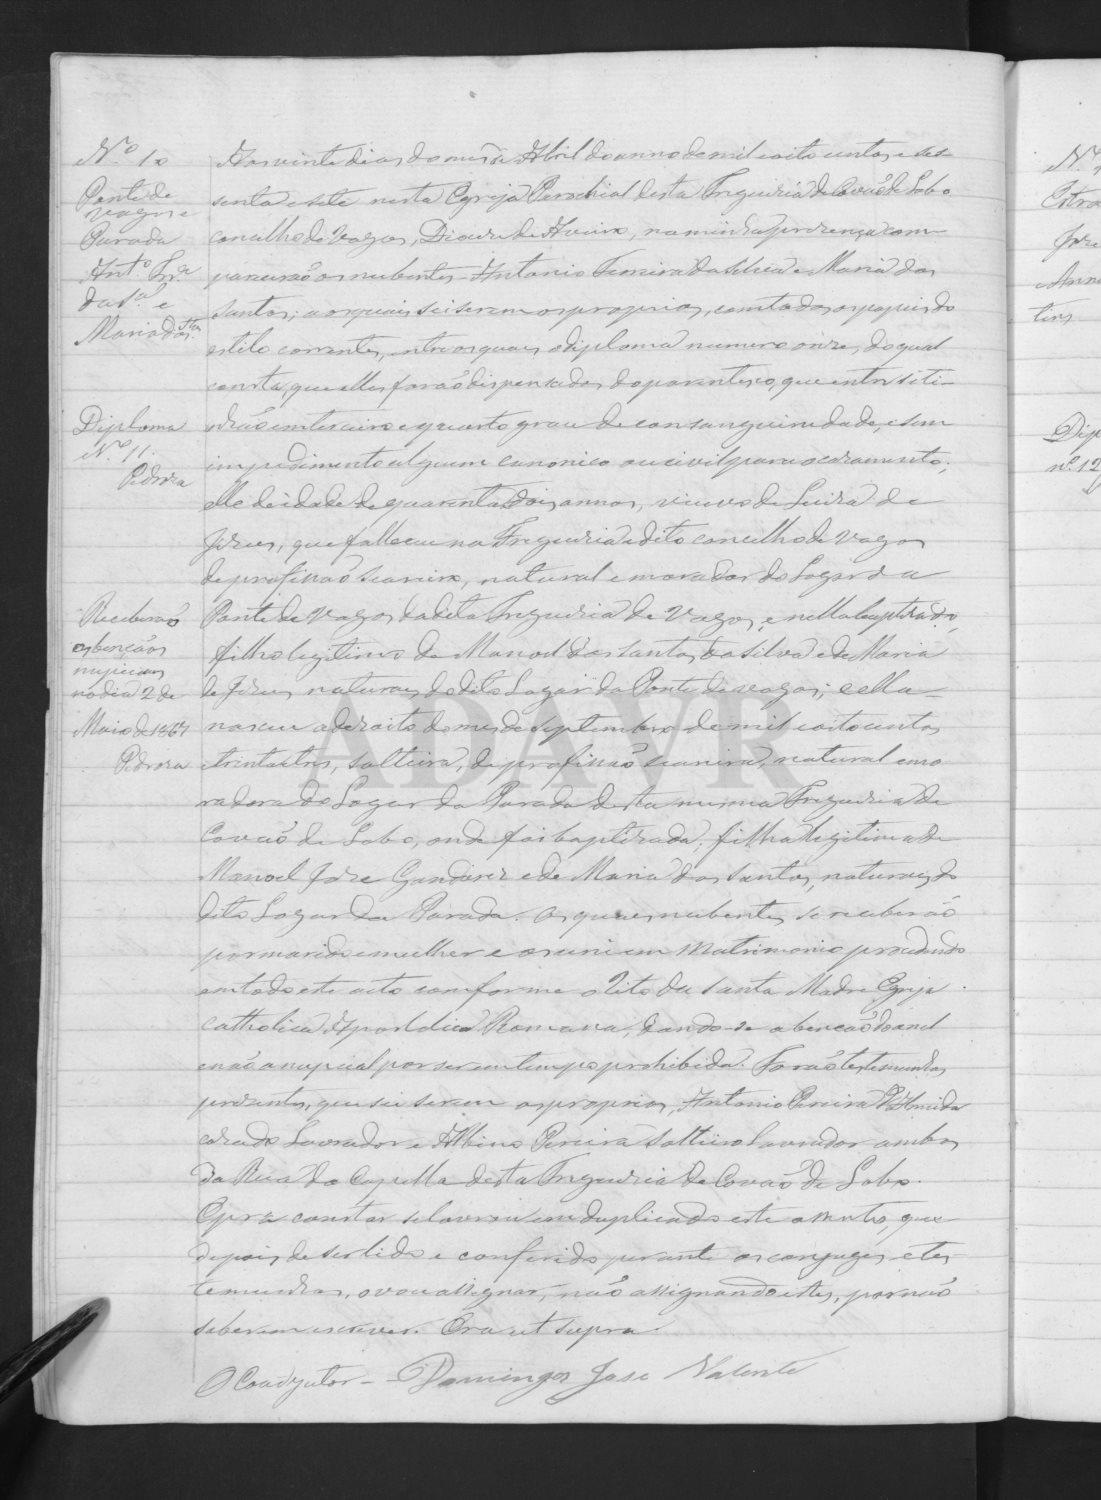 N.º 10
Ponte de
Vagos e
Parada
Ant.º Frr.ª
da S.ª e
Maria dos S.tos
Diploma
N.º 11.
Pedroza
Receberaõ
as bençãos
nupciaes
no dia 2 de
Maio de 1867
Pedroza
Aos vinte dias do mez de Abril do anno de mil oito centos e ses-
senta e sete nesta Egreja Parochial desta Freguezia de Covaõ de Lobo
concelho de Vagos, Diocese de Aveiro, na minha prezença com-
pareceraõ os nubentes Antonio Ferreira da Silva e Maria dos
Santos; aos quaes sei serem os proprios, com todos os papeis do
estilo correntes, entre os quaes o diploma numero onze, do qual
consta, que elles foraõ dispensados do parentesco, que entre si ti-
nhaõ em terceiro e quarto grau de consanguinidade, e sem
impedimento algum canonico ou civil para o cazamento;
elle de idade de quarenta e dois annos, viuvo de Luiza de
Jezus, que falleceu na Freguezia e dito concelho de Vagos
de profissaõ seareiro, natural e morador do Logar da
Ponte de Vagos da dita Freguezia de Vagos, e nella baptizado,
filho legitimo de Manoel dos Santos da Silva e de Maria
de Jezus naturaes do dito Logar da Ponte de Vagos; e ella
nasceu a dezoito do mez de Septembro de mil oito centos
e trinta e tres, solteira, de profissaõ seareira, natural e mo
radora do Logar da Parada desta mesma Freguezia de
Covaõ de Lobo, onde foi baptizada, filha legitima de
Manoel Joze Gandarez e de Maria dos Santos, naturaes do
dito Logar da Parada. Os quaes nubentes se receberaõ
por marido e mulher e os uni em Matrimonio procedendo
em todo este acto comforme o Rito da Santa Madre Egreja
Catholica Apostolica Romana, dando-se a bençaõ do anel
e naõ a nupcial por ser em tempo prohibido. Foraõ testemunhas
prezentes, que sei serem os proprios, Antonio Pereira d'Almeida
cazado Lavrador e Albino Pereira solteiro lavrador ambos
da Rua da Capella desta Freguezia de Covaõ de Lobo.
E para constar se lavrou em duplicado este assento, que
depois de ser lido e conferido perante os conjuges e tes-
temunhas, o vou assignar, naõ assignando estes, por naõ
saberem escrever. Era ut supra
O Coadjutor - Domingos Jose Valente
ADAVR
N.º
Estra
Joze
e Anna
tins
Dip
n.º 12